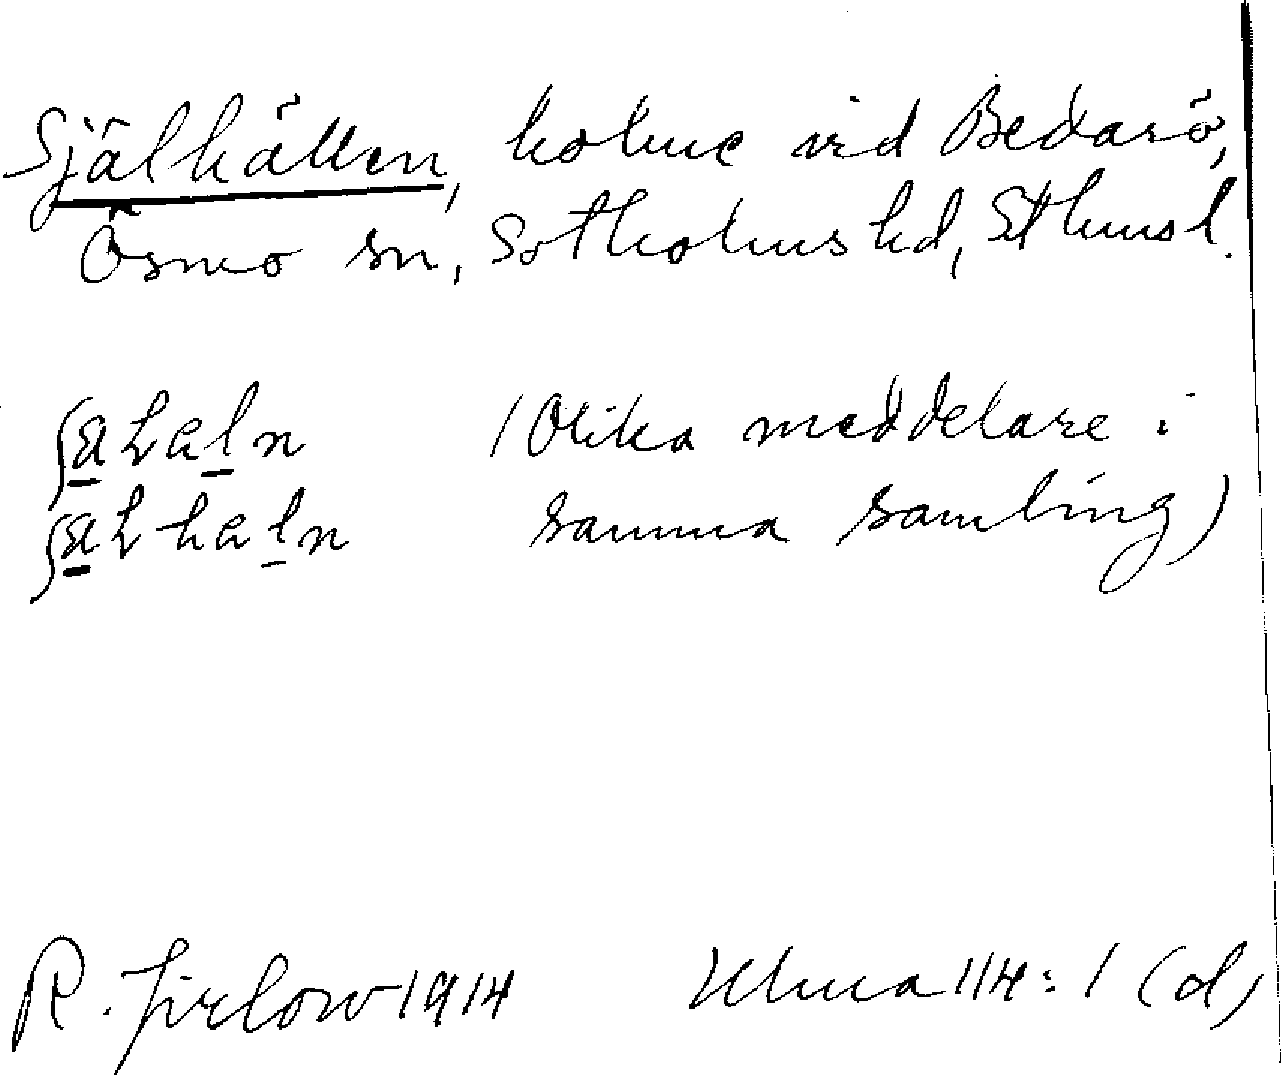 Själhällen, holme vid Bedarö,
Ösmo sn, Sotholms hd, Sthms l.
ʃa̲lhel̲n (Olika meddelare i
ʃa̲lhel̲n samma samling)
R. Jirlow 1914 Ulma 114:1 (d)